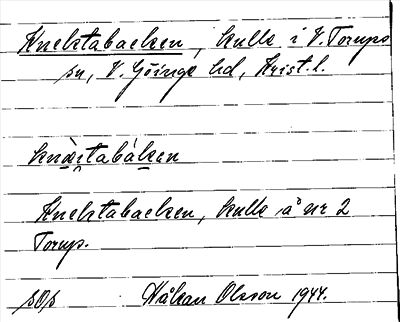 Knektabacken, kulle i V. Torups
sn, V. Göinge hd, Krist. l.
knæ̀i̯tabáken
Knektabacken, kulle å nr 2
Torup.
Håkan Olsson 1944.